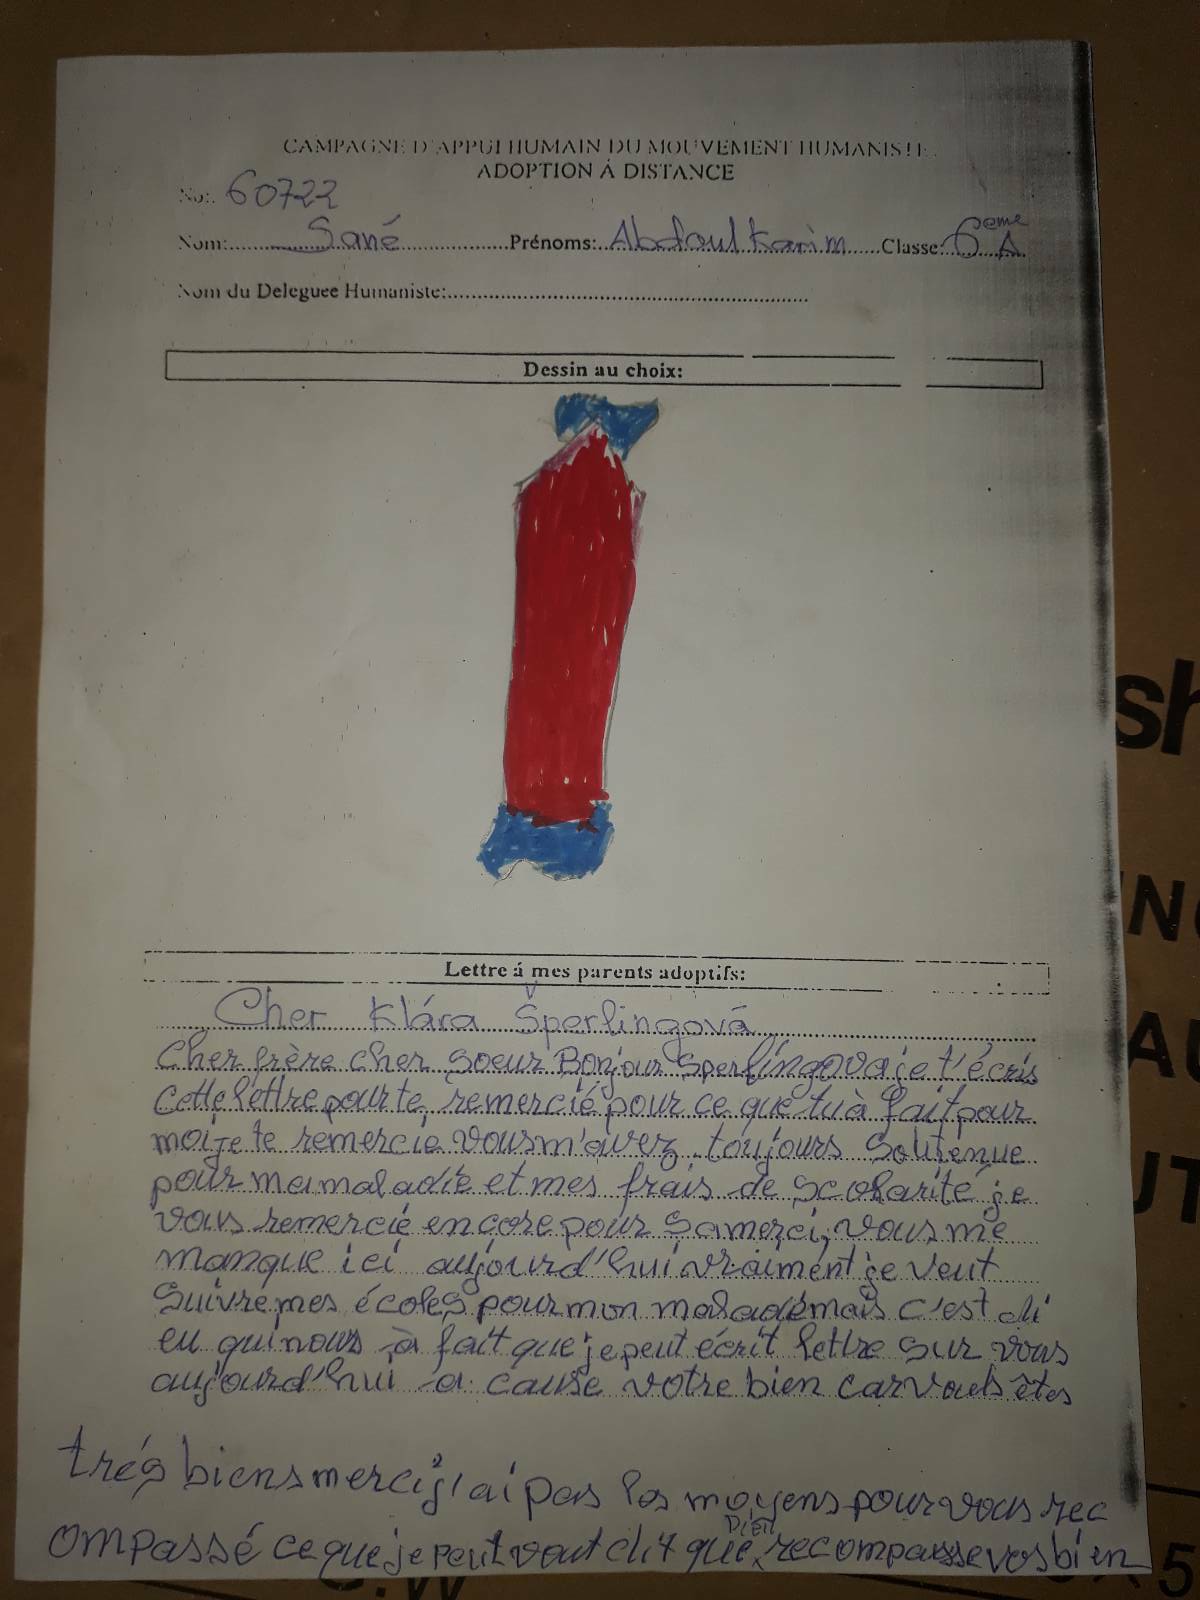 CAMPAGNE D'APPUI HUMAIN DU MOUVEMENT HUMANISTE
ADOPTION Á DISTANCE
No: 60722
Nom: Sané Prénoms: Abdoul Karim Classe: 6eme A
Nom du Deleguee Humaniste:
Dessin au choix:
Lettre á mes parents adoptifs:
Cher Klára Šperlingová
Cher frère cher soeur Bonjour Sperlingova je t'écris
cette lettre pour te remercié pour ce que tu à fait pour
moi je te remercie vous m'avez toujours soutenue
pour ma maladie et mes frais de scolarité je
vous remercié encore pour sa merci, vous me
manque ici aujourd'hui vraiment je veut
suivre mes écoles pour mon maladé mais c'est di
eu qui nous à fait que je peut écrit lettre sur vous
aujourd'hui a cause votre bien car vous êtes
trés biens merci j'ai pas les moyens pour vous rec
ompassé ce que je peut vout dit que Dieu recompasse vos bien
sh
AU
UT